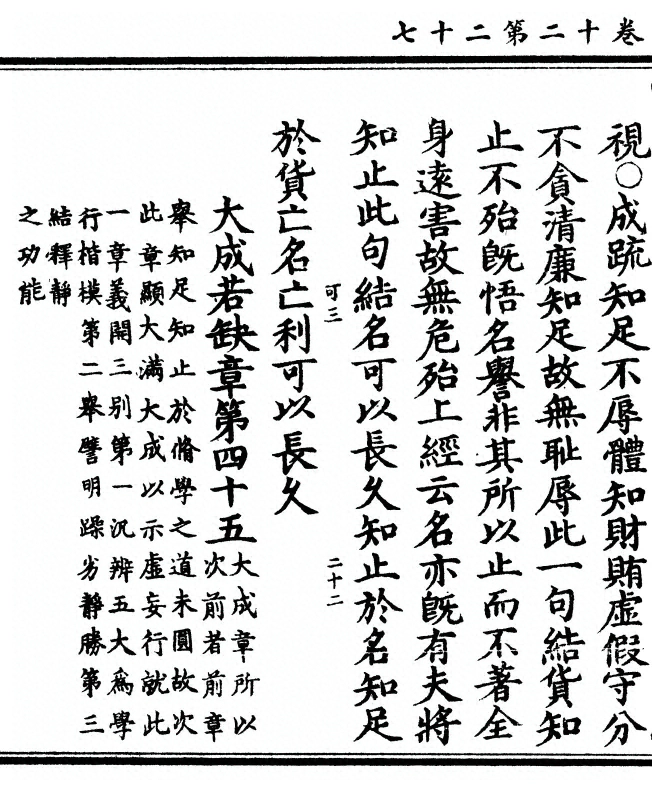 卷十二第二十七
視○成疏知足不辱體知財賄虛假守分
不貪清廉知足故無耻辱此一句結貨知
止不殆既悟名譽非其所以止而不著全
身遠害故無危殆上經云名亦既有夫將
知止此句結名可以長久知止於名知足
可三 二十二
於貨亡名亡利可以長久
大成若缺章第四十五
大成章所以
次前者前章
舉知足知止於脩學之道未圓故次
此章顯大滿大成以示虛妄行就此
一章義開三別第一汎辨五大爲學
行楷樸第二舉譬明躁劣靜勝第三
結釋靜
之功能